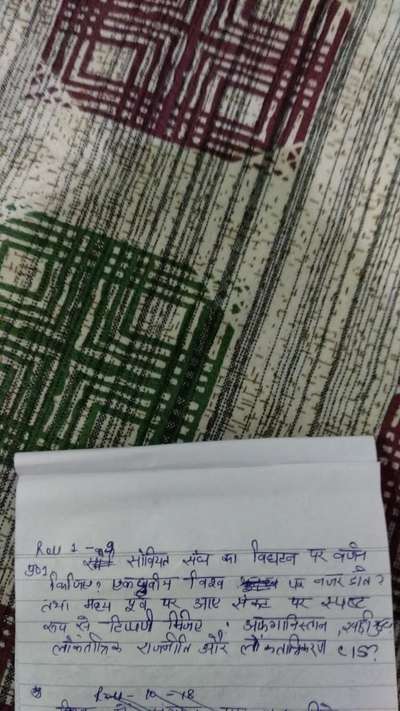 Roll 1 - 9
प्र01 सोवियत संघ का विघटन पर वर्णन
किजिए? एकध्रुवीय विश्व पर नजर डाले?
तथा मध्य पूर्व पर आए संकट पर स्पष्ट
रूप से टिप्पणी किजिए। अफगानिस्तान,
लोकतांत्रिक राजनीति और लोकतांत्रिकरण CIS?
Roll - 10 - 18